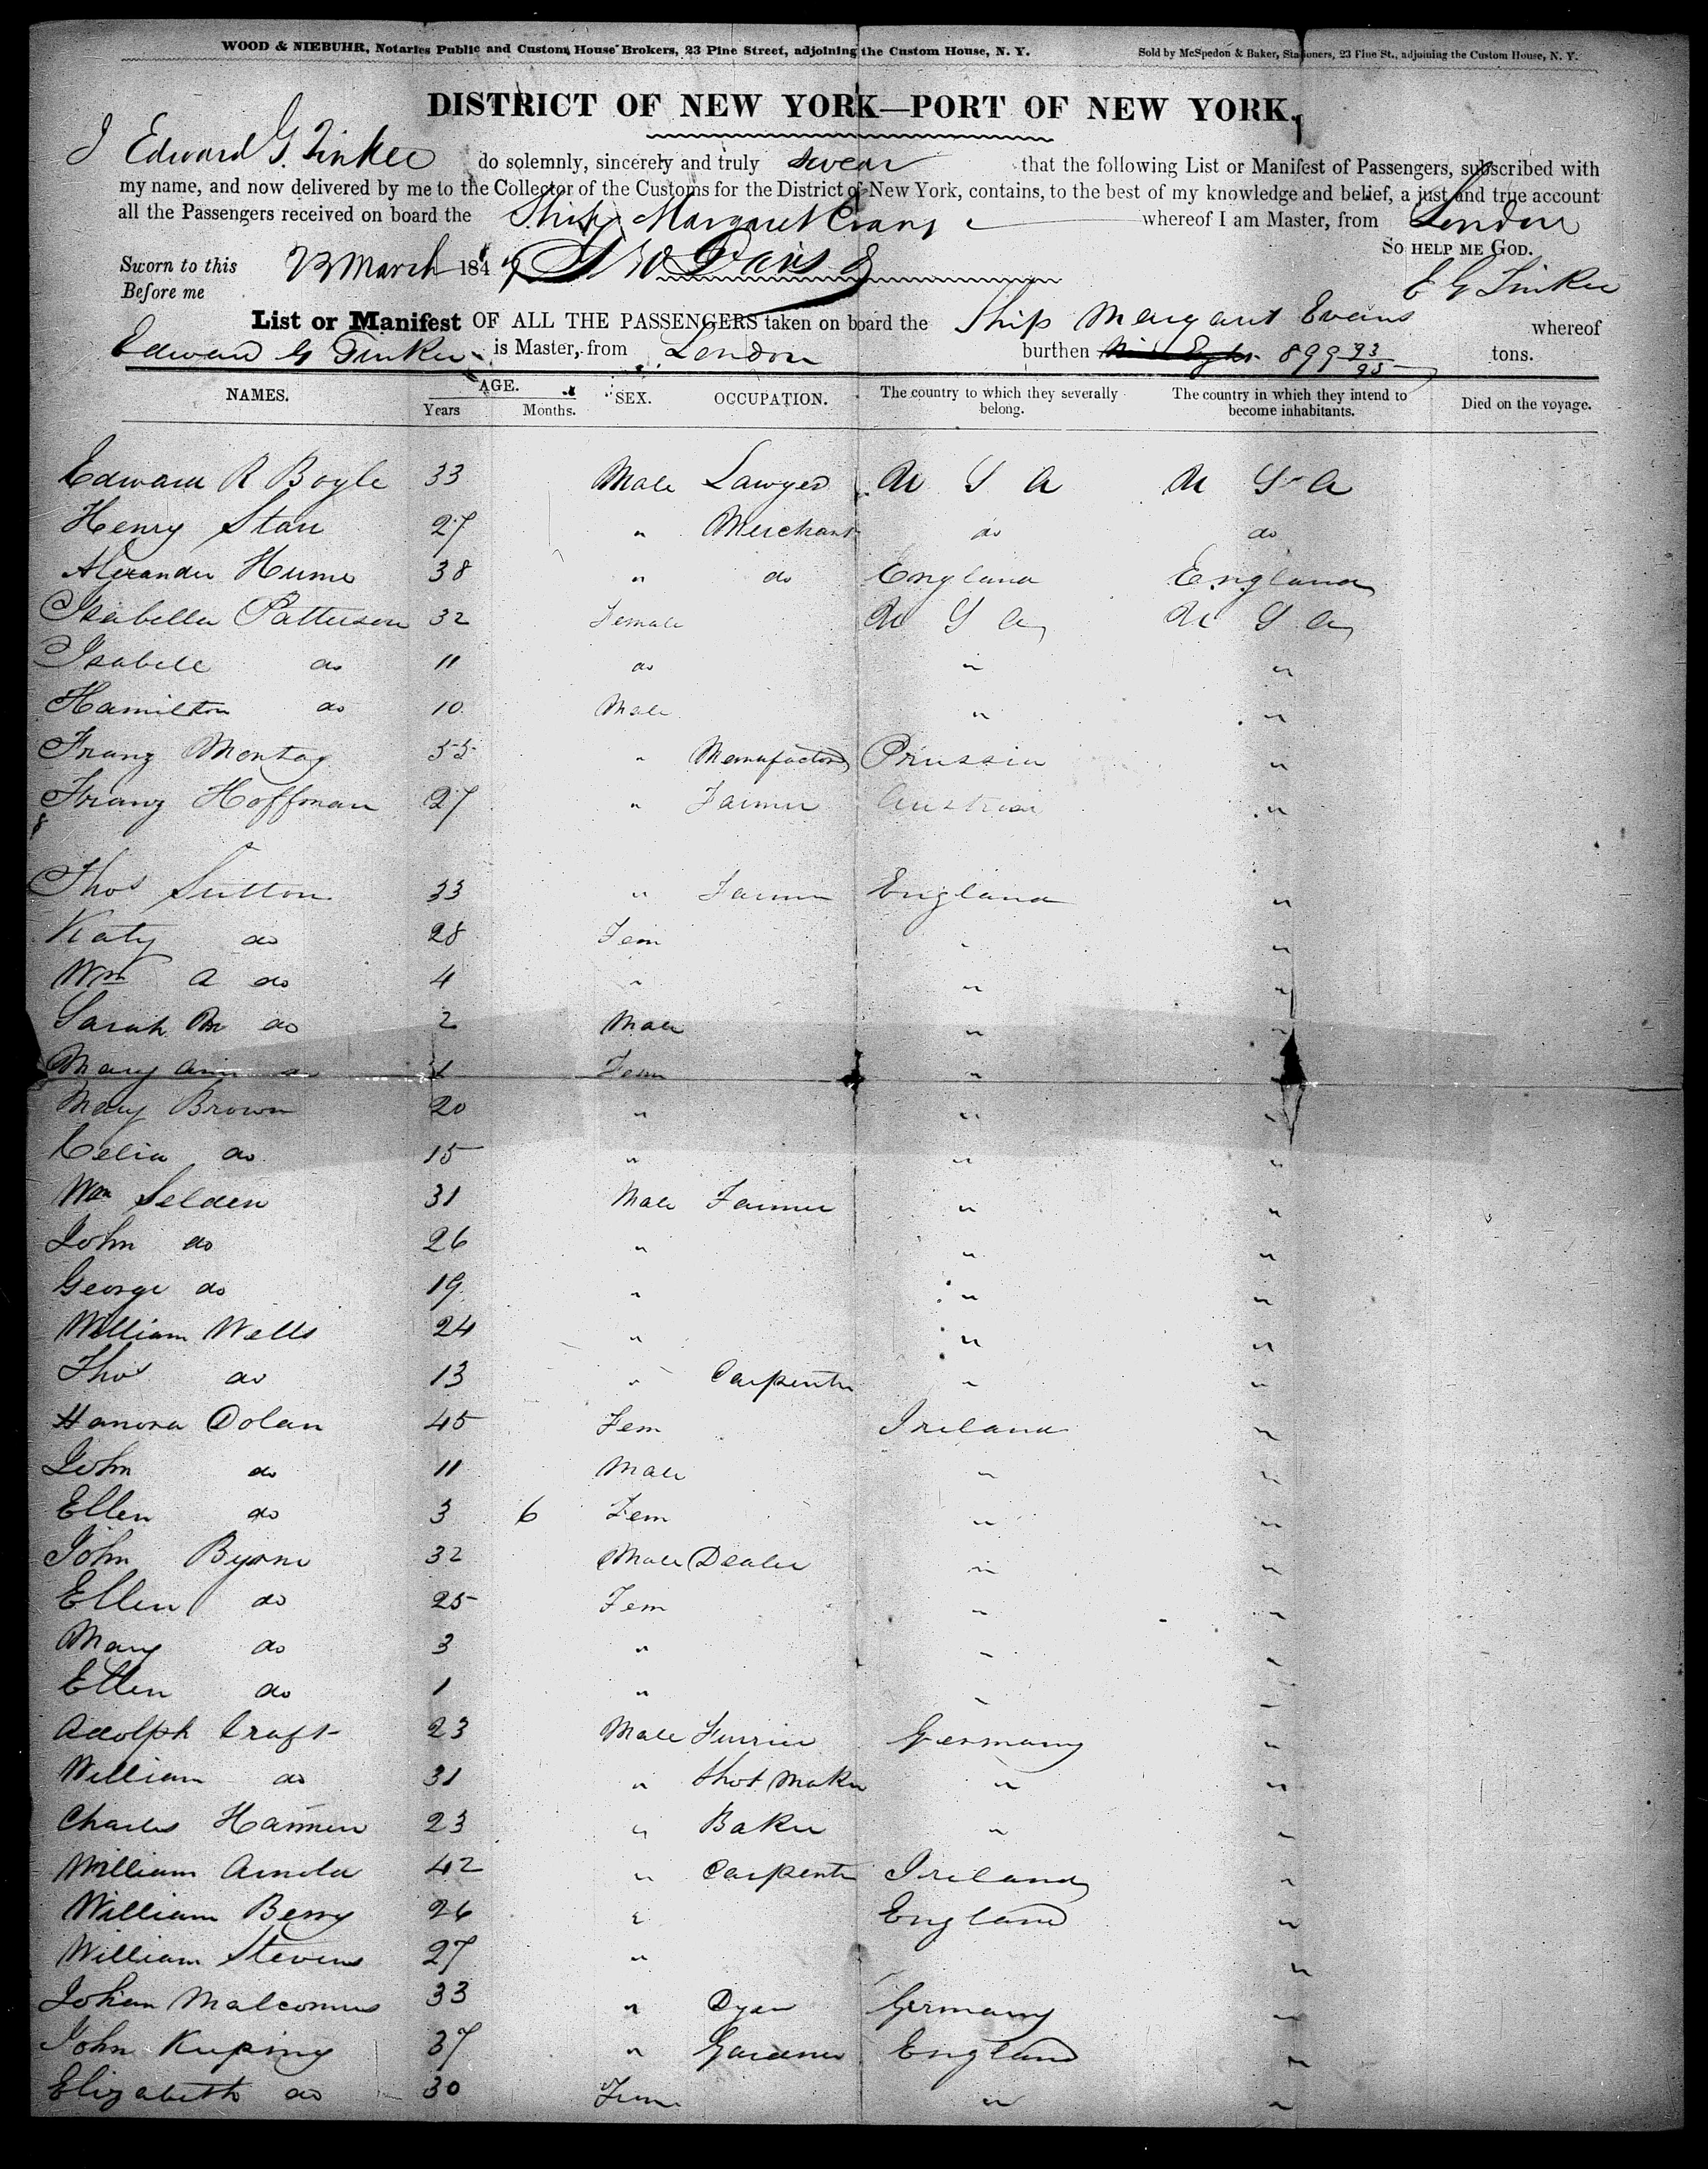 WOOD & NIEBUHR, Notaries Public and Custom House Brokers, 23 Pine Street, adjoining the Custom House, N. Y.
Sold by McSpedon & Baker, Stationers, 23 Pine St., adjoining the Custom House, N. Y.
DISTRICT OF NEW YORK—PORT OF NEW YORK,
I Edward G. Tinker do solemnly, sincerely and truly swear that the following List or Manifest of Passengers, subscribed with
my name, and now delivered by me to the Collector of the Customs for the District of New York, contains, to the best of my knowledge and belief, a just and true account
all the Passengers received on board the Ship Margaret Evans whereof I am Master, from London
SO HELP ME GOD.
Sworn to this 23 March 184
Before me
E G Tinker
List or Manifest OF ALL THE PASSENGERS taken on board the Ship Margaret Evans whereof
Edward G Tinker is Master, from London burthen 899 93/95 tons.
NAMES. AGE. Years Months. SEX. OCCUPATION. The country to which they severally belong. The country in which they intend to become inhabitants. Died on the voyage.
Edward R Boyle 33 Male Lawyer U S A U S A
Henry Starr 27 " Merchant do do
Alexander Hume 38 " do England England
Isabella Patterson 32 Female U S A U S A
Isabell do 11 do " "
Hamilton do 10 Male " "
Franz Montag 55 " Manufactor Prussia "
Franz Hoffman 27 " Farmer Austria "
8
Thos Sutton 33 " Farmer England "
Katy do 28 Fem " "
Wm A do 4 " " "
Sarah M do 2 Male " "
Mary Ann do 1 Fem " "
Mary Brown 20 " " "
Celia do 15 " " "
Wm Selden 31 Male Farmer " "
John do 26 " " "
George do 19 " " "
William Wells 24 " " "
Thos do 13 " Carpenter " "
Hanora Dolan 45 Fem Ireland "
John do 11 Male " "
Ellen do 3 6 Fem " "
John Byrne 32 Male Dealer " "
Ellen do 25 Fem " "
Mary do 3 " " "
Ellen do 1 " " "
Adolph Craft 23 Male Furrier Germany "
William do 31 " Shot Maker " "
Charles Hammen 23 " Baker " "
William Arnold 42 " Carpenter Ireland "
William Berry 26 " England "
William Stevens 27 " "
Johan Malcomus 33 " Dyer Germany "
John Kuping 37 " Gardner England "
Elizabeth do 30 Fem " "